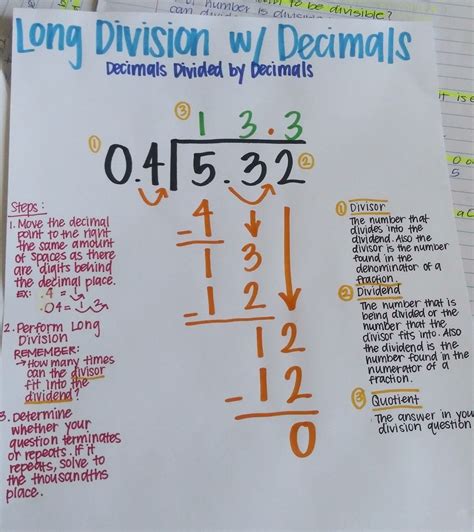 of number is
can divide
to be divisible?
Long Division w/ Decimals
Decimals Divided by Decimals
③
1 3.3
① 0.4 5.32 ②
- 4
1 3
- 1 2
1 2
- 1 2
0
Steps:
1. Move the decimal
point to the right
the same amount
of spaces as there
are digits behind
the decimal place.
EX: .4 =
.04 =
2. Perform Long
Division
REMEMBER:
→ How many times
can the divisor
fit into the
dividend?
3. Determine
whether your
question terminates
or repeats. If it
repeats, solve to
the thousandths
place.
① Divisor
The number that
divides into the
dividend. Also the
divisor is the number
found in the
denominator of a
fraction.
② Dividend
The number that is
being divided or the
number that the
divisor fits into. Also
the dividend is the
number found in the
numerator of a
fraction.
③ Quotient
The answer in you
division question